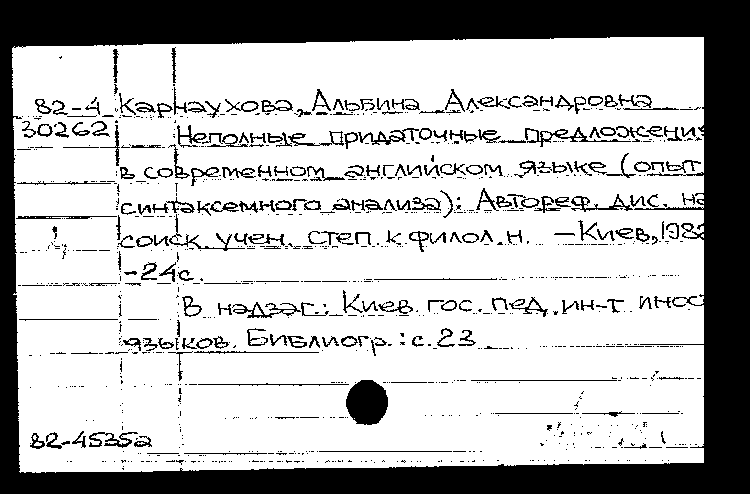 82-4 Карнаухова, Альбина Александровна
30262 Неполные придаточные предложения
в современном английском языке (опыт
синтаксемного анализа): Автореф. дис. на
соиск. учен. степ. к.филол.н. — Киев, 1982
-24с.
В надзаг.: Киев. гос. пед. ин-т иностр
языков. Библиогр.: с. 23
82-45352